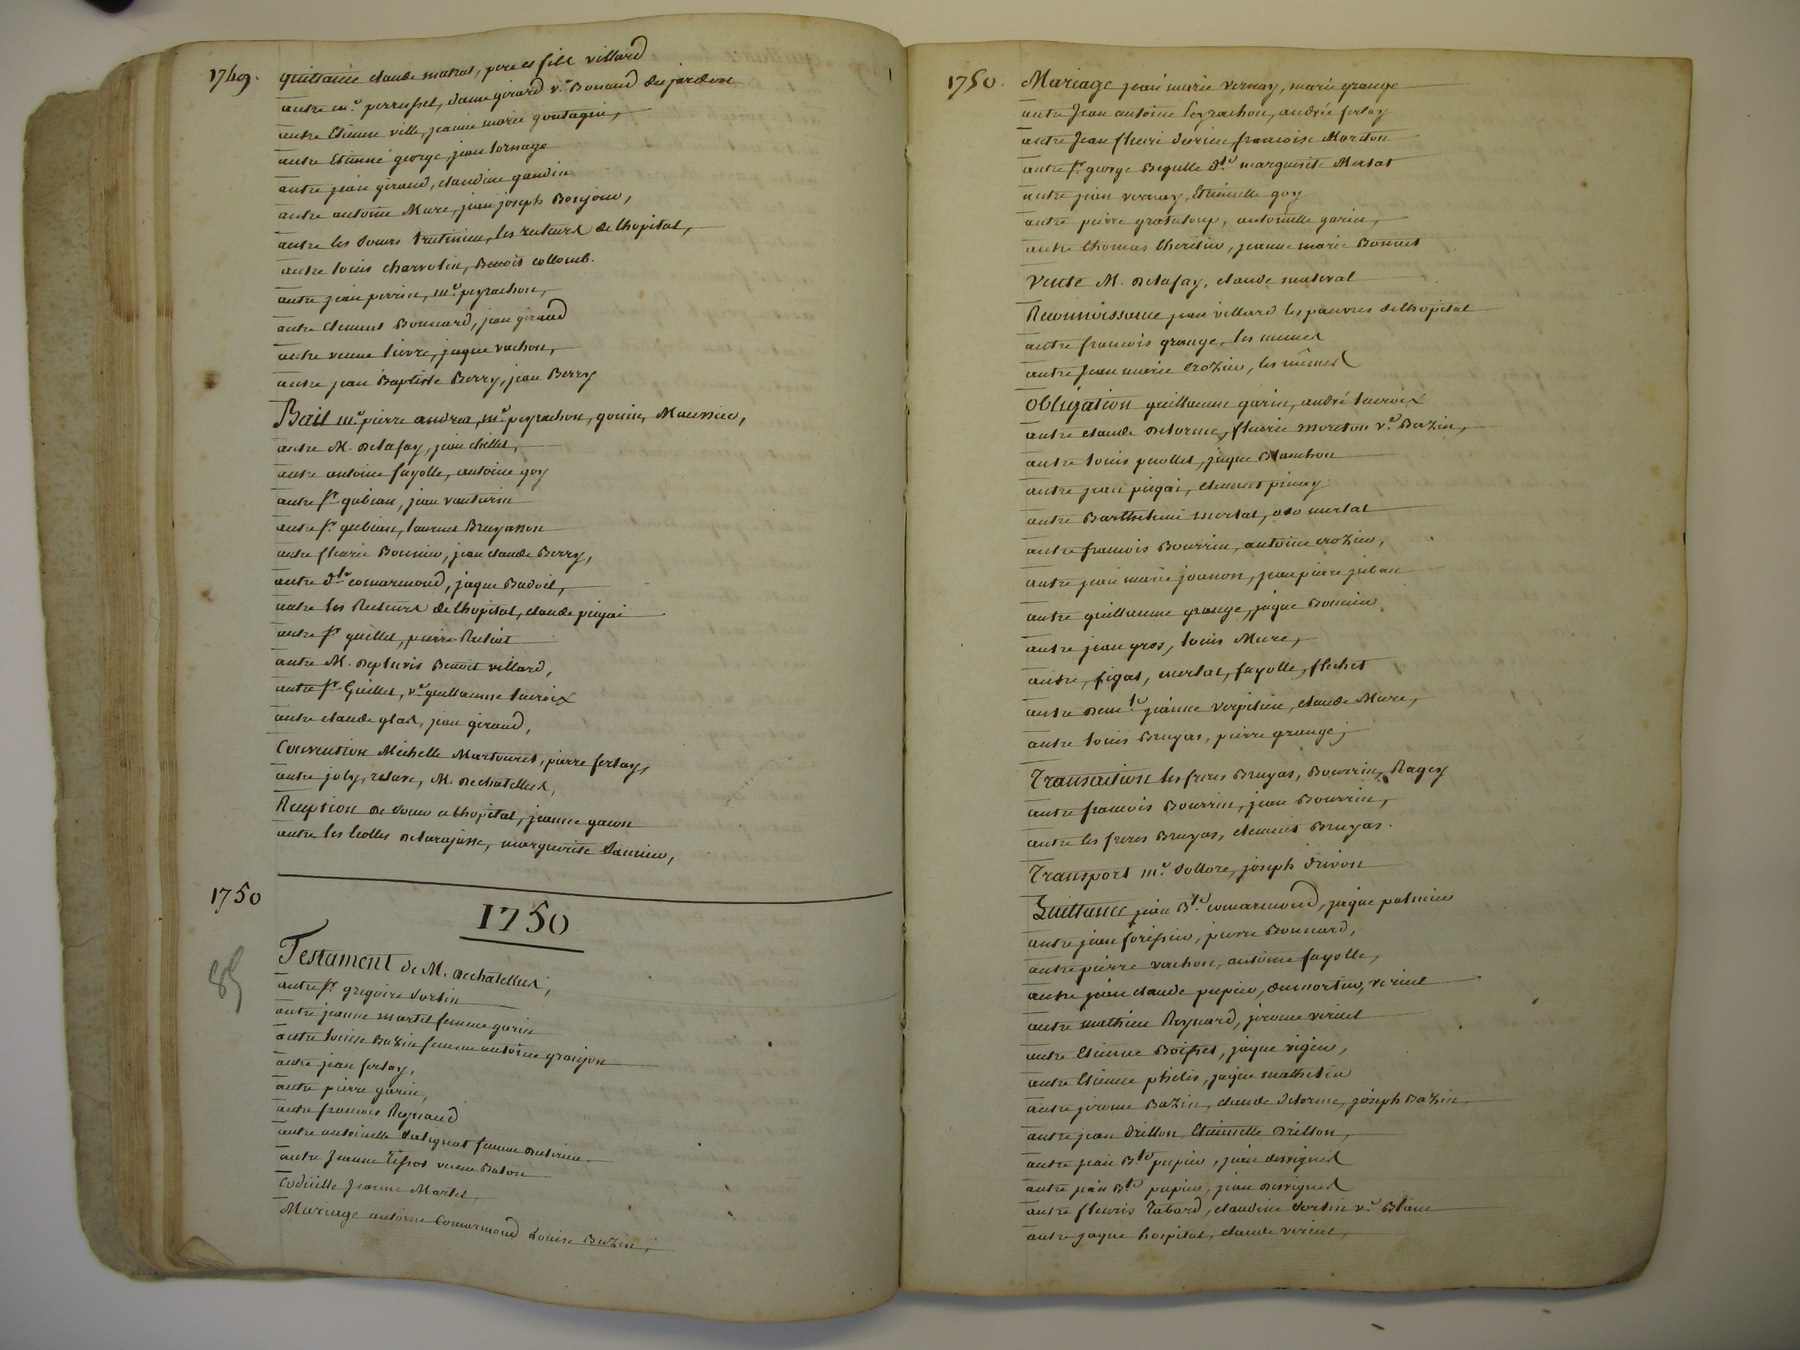 1749. quittance claude matrat, pere et fils villard
autre me perrusset, dame girard ve Bonard desjardon
autre Etienne ville, jeanne marie goutagni,
autre Etienne george, jean tornage
autre jean giraud, claudine gaudin
autre antoine Mure, jean joseph Bonjour,
autre les soeurs les recteurs de lhopital,
autre louis charretin, Benoit collomb.
autre jean perrin, me peyrachon,
autre clement Bonnard, jean giraud
autre veuve lievre, jaque vachon,
autre jean Baptiste Berry, jean Berry
Bail me pierre andrea, me peyrachon, gonin, Maussier,
autre M. Delafay, jean chillet,
autre antoine fayolle, antoine goy
autre sr gubian, jean vanturin
autre sr gubian, laurent Bruyasson
autre fleurie Bonnier, jean claude Berry,
autre dlle comarmond, jaque Badoil,
autre les Recteurs de lhopital, claude pingai
autre sr guillet, pierre Ruliat
autre M. Benoit villard,
autre sr Guillet, ve guillaume lacroix
autre claude glas, jean giraud,
Convention Michelle Martouret, pierre ferlay,
autre joly, M. Dechatellus,
Reception de soeur a lhopital, jeanne gacon
autre les Ecolles Delarajasse, marguerite
1750
1750
85
Testament de M. Dechatellus,
autre sr gregoire Sortin
autre jeanne martel femme garin
autre Louise Bazin femme antoine granjon
autre jean ferlay,
autre pierre garin,
autre francois Reynaud
autre antoinette Salignat femme
autre Jeanne Tissot veuve Baton
Codicille Jeanne Martel,
Mariage antoine Comarmond Louise Bazin,
1750. Mariage jean marie vernay, marie grange
autre Jean antoine peyrachon, andrée ferlay
autre Jean fleuri Verrier, francoise Moreton
autre sr george Begulle dlle marguerite Merlat
autre jean vernay, Etiennette goy
autre pierre grataloup, antoinette garin,
autre thomas theritier, jeanne marie Bonnet
Vente M. Delafay, claude matival
Reconnoissance jean villard les pauvres delhopital
autre francois grange, les memes
autre Jean marie Crozier, les mêmes
Obligation guillaume garin, andré lacroix
autre claude Delorme, fleurie moreton ve Bazin,
autre louis paollet, jaque Blanchon
autre jean pingai, clement pinay
autre Barthelemi merlat, merlat
autre francois Bourrin, antoine crozier,
autre jean marie joanon, jean pierre juban
autre guillaume grange, jaque Bonnier
autre jean gros, louis Mure,
autre, figat, merlat, fayolle, flechet
autre demlle jeanne verpilieu, claude Mure,
autre louis Bruyas, pierre grange,
Transaction les freres Bruyas, Bourrin, Ragey
autre francois Bourrin, jean Bourrin,
autre les freres Bruyas, clement Bruyas.
Transport me Vollore, joseph Drivon
Quittance jean Bte comarmond, jaque patissier
autre jean forissier, pierre Bonnard,
autre pierre vachon, antoine fayolle,
autre jean claude pupier, dumortier, viricel
autre mathieu Reynard, jerome viricel
autre Etienne Boisset, jaque vigier,
autre Etienne phelis, jaque mathelin
autre jerome Bazin, claude Delorme, joseph Bazin,
autre jean Drillon, Etiennette Drillon,
autre jean Bte pupier, jean desvignes
autre jean Bte pupier, jean Desvignes
autre fleuris Tabard, claudine Sortin ve Blanc
autre jaque hospital, claude viricel,